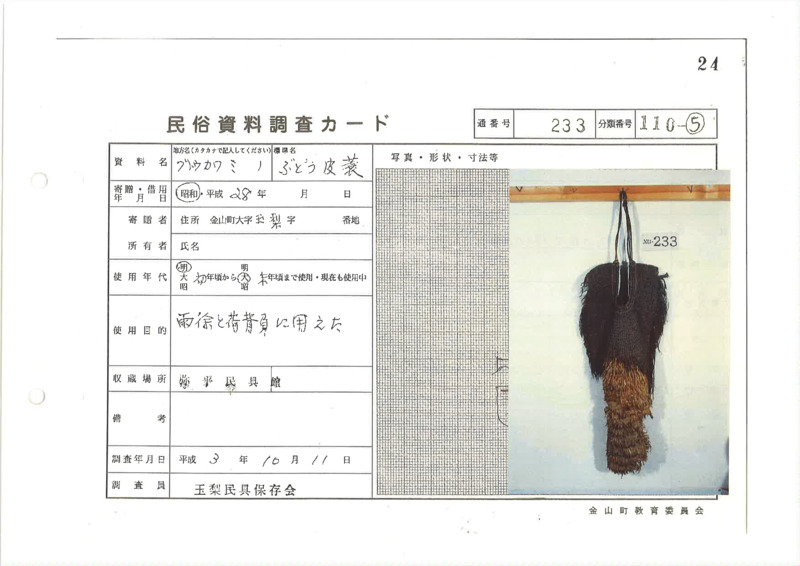 24
民俗資料調査カード
通番号 233 分類番号 110-⑤
資料名 地方名(カタカナで記入してください) ブドウカワミノ 標準名 ぶどう皮蓑
写真・形状・寸法等
寄贈・借用年月日 昭和・平成 28年 月 日
寄贈者 住所 金山町大字玉梨字 番地
所有者 氏名
使用年代 明大昭 初年頃から 明大昭 末年頃まで使用・現在も使用中
使用目的 雨徐と荷背負に用えた
収蔵場所 民具館
備考
調査年月日 平成 3年 10月 11日
調査員 玉梨民具保存会
233
金山町教育委員会